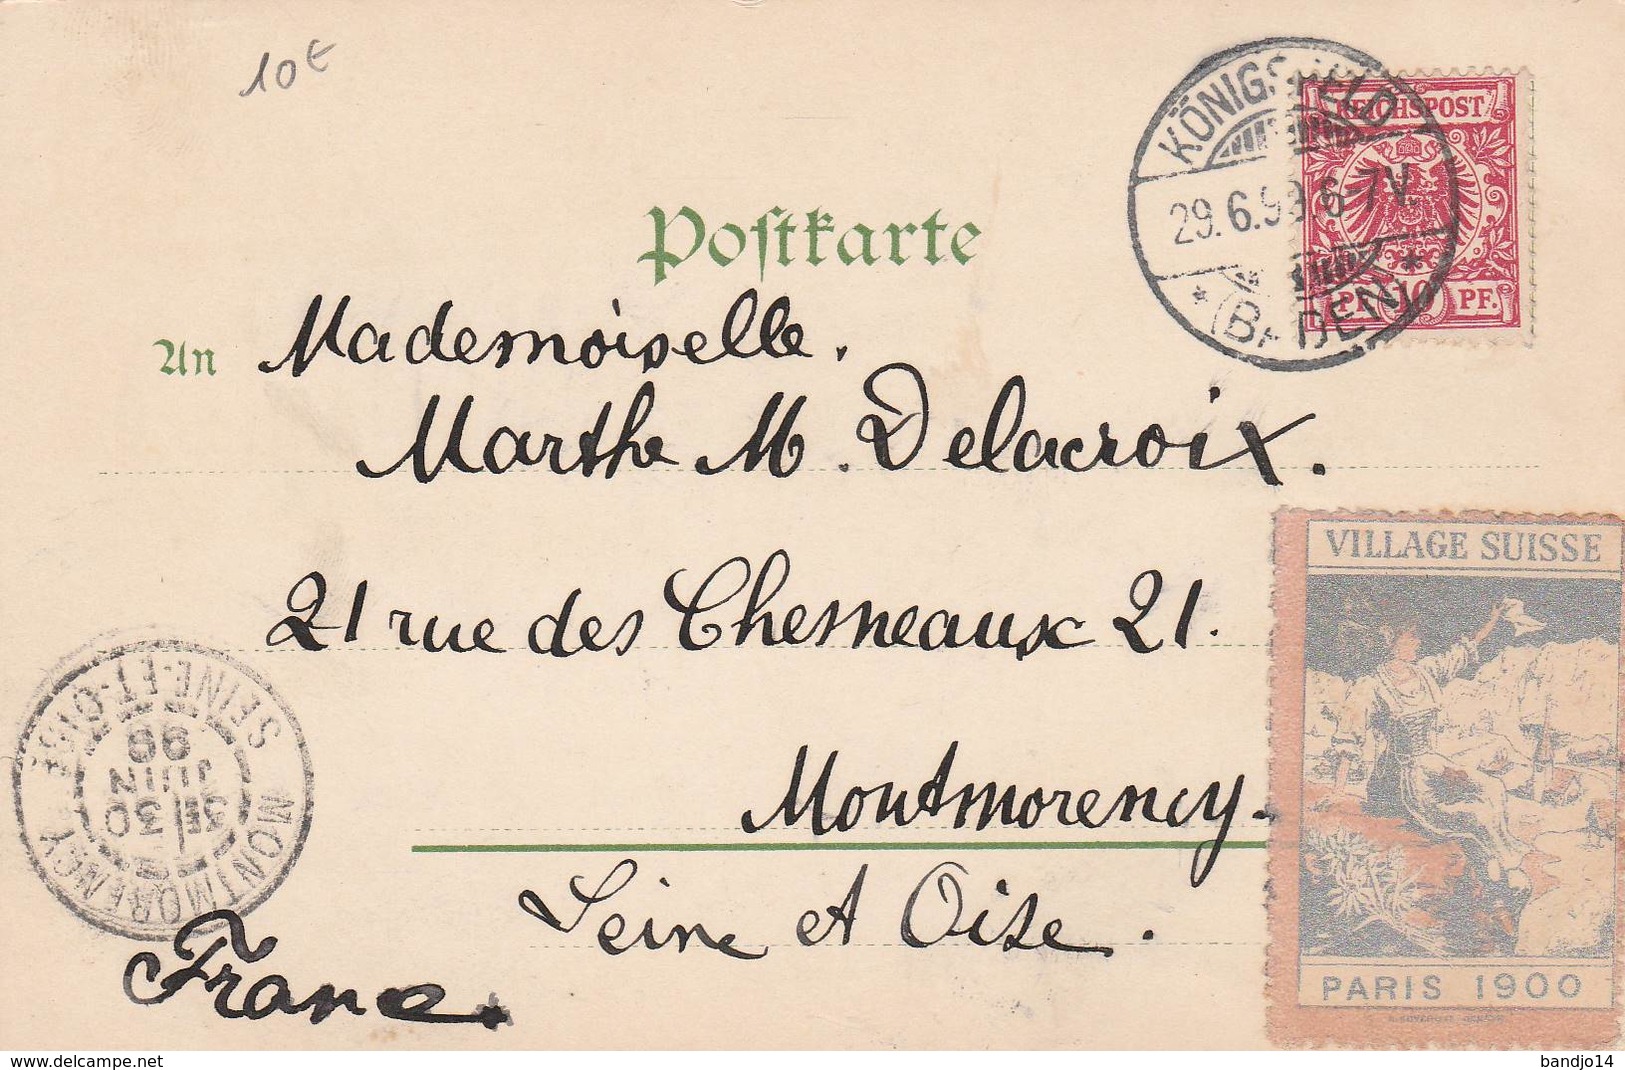 10€
KÖNIGSFELD
29.6.98.6-7V.
* (BADEN) *
REICHSPOST
PF. 10 PF.
Postkarte
An Mademoiselle.
Marthe M. Delacroix.
21 rue des Chesneaux 21.
Montmorency.
Seine et Oise.
France.
MONTMORENCY
SEINE-ET-OISE
3E 30
JUIN
98
VILLAGE SUISSE
PARIS 1900
delcampe.net
bandjo14